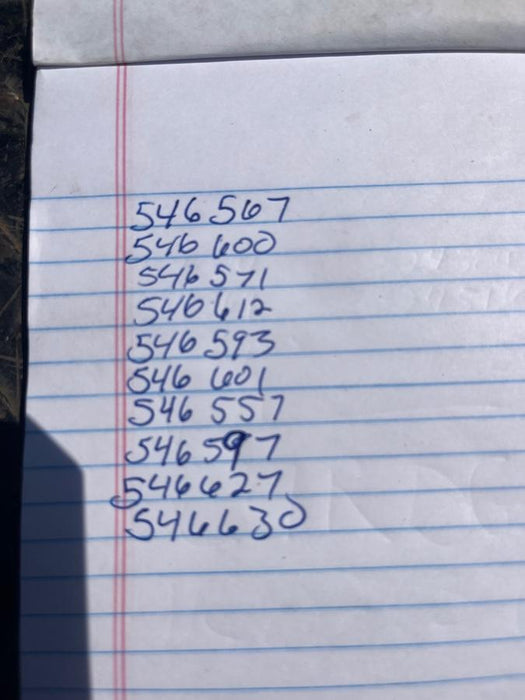 546567
546600
546571
546612
546593
546601
546557
546597
546627
546630